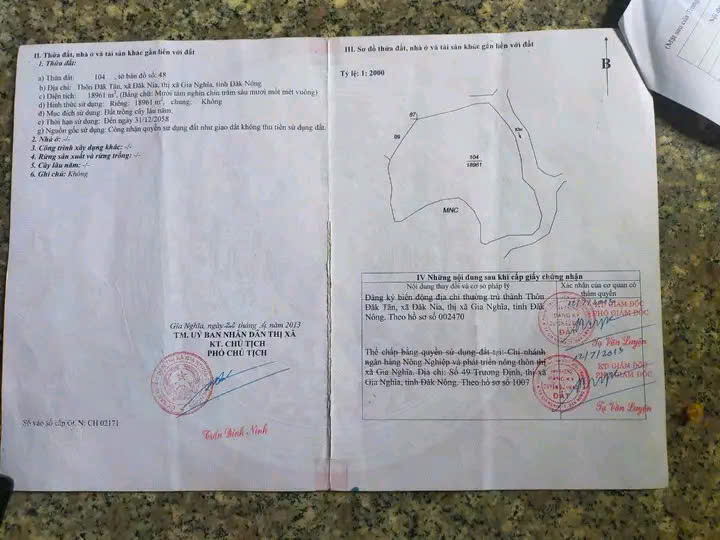 II. Thửa đất, nhà ở và tài sản khác gắn liền với đất
1. Thửa đất:
a) Thửa đất: 104 , tờ bản đồ số: 48
b) Địa chỉ: Thôn Đắk Tân, xã Đăk Nia, thị xã Gia Nghĩa, tỉnh Đăk Nông
c) Diện tích: 18961 m², (Bằng chữ: Mười tám nghìn chín trăm sáu mươi mốt mét vuông)
d) Hình thức sử dụng: Riêng: 18961 m², chung: Không
đ) Mục đích sử dụng: Đất trồng cây lâu năm.
e) Thời hạn sử dụng: Đến ngày 31/12/2058
g) Nguồn gốc sử dụng: Công nhận quyền sử dụng đất như giao đất không thu tiền sử dụng đất.
2. Nhà ở: -/-
3. Công trình xây dựng khác: -/-
4. Rừng sản xuất và rừng trồng: -/-
5. Cây lâu năm: -/-
6. Ghi chú: Không
Gia Nghĩa, ngày tháng 4 năm 2013
TM. UỶ BAN NHÂN DÂN THỊ XÃ
KT. CHỦ TỊCH
PHÓ CHỦ TỊCH
Trần Đình Ninh
Số vào sổ cấp GCN: CH 02171
III. Sơ đồ thửa đất, nhà ở và tài sản khác gắn liền với đất
Tỷ lệ 1: 2000
B
87
86
104
18961
MNC
IV Những nội dung sau khi cấp giấy chứng nhận
Nội dung thay đổi và cơ sở pháp lý
Xác nhận của cơ quan có thẩm quyền
Đăng ký biến động địa chỉ thường trú thành Thôn
Đăk Tân, xã Đăk Nia, thị xã Gia Nghĩa, tỉnh Đăk
Nông. Theo hồ sơ số 002470
KT GIÁM ĐỐC
PHÓ GIÁM ĐỐC
Tạ Văn Luyện
Thế chấp bằng quyền sử dụng đất tại: Chi nhánh
ngân hàng Nông Nghiệp và phát triển nông thôn thị
xã Gia Nghĩa. Địa chỉ: Số 49 Trương Định, thị xã
Gia Nghĩa, tỉnh Đăk Nông. Theo hồ sơ số 1007
12/7/2013
KT GIÁM ĐỐC
PHÓ GIÁM ĐỐC
Tạ Văn Luyện